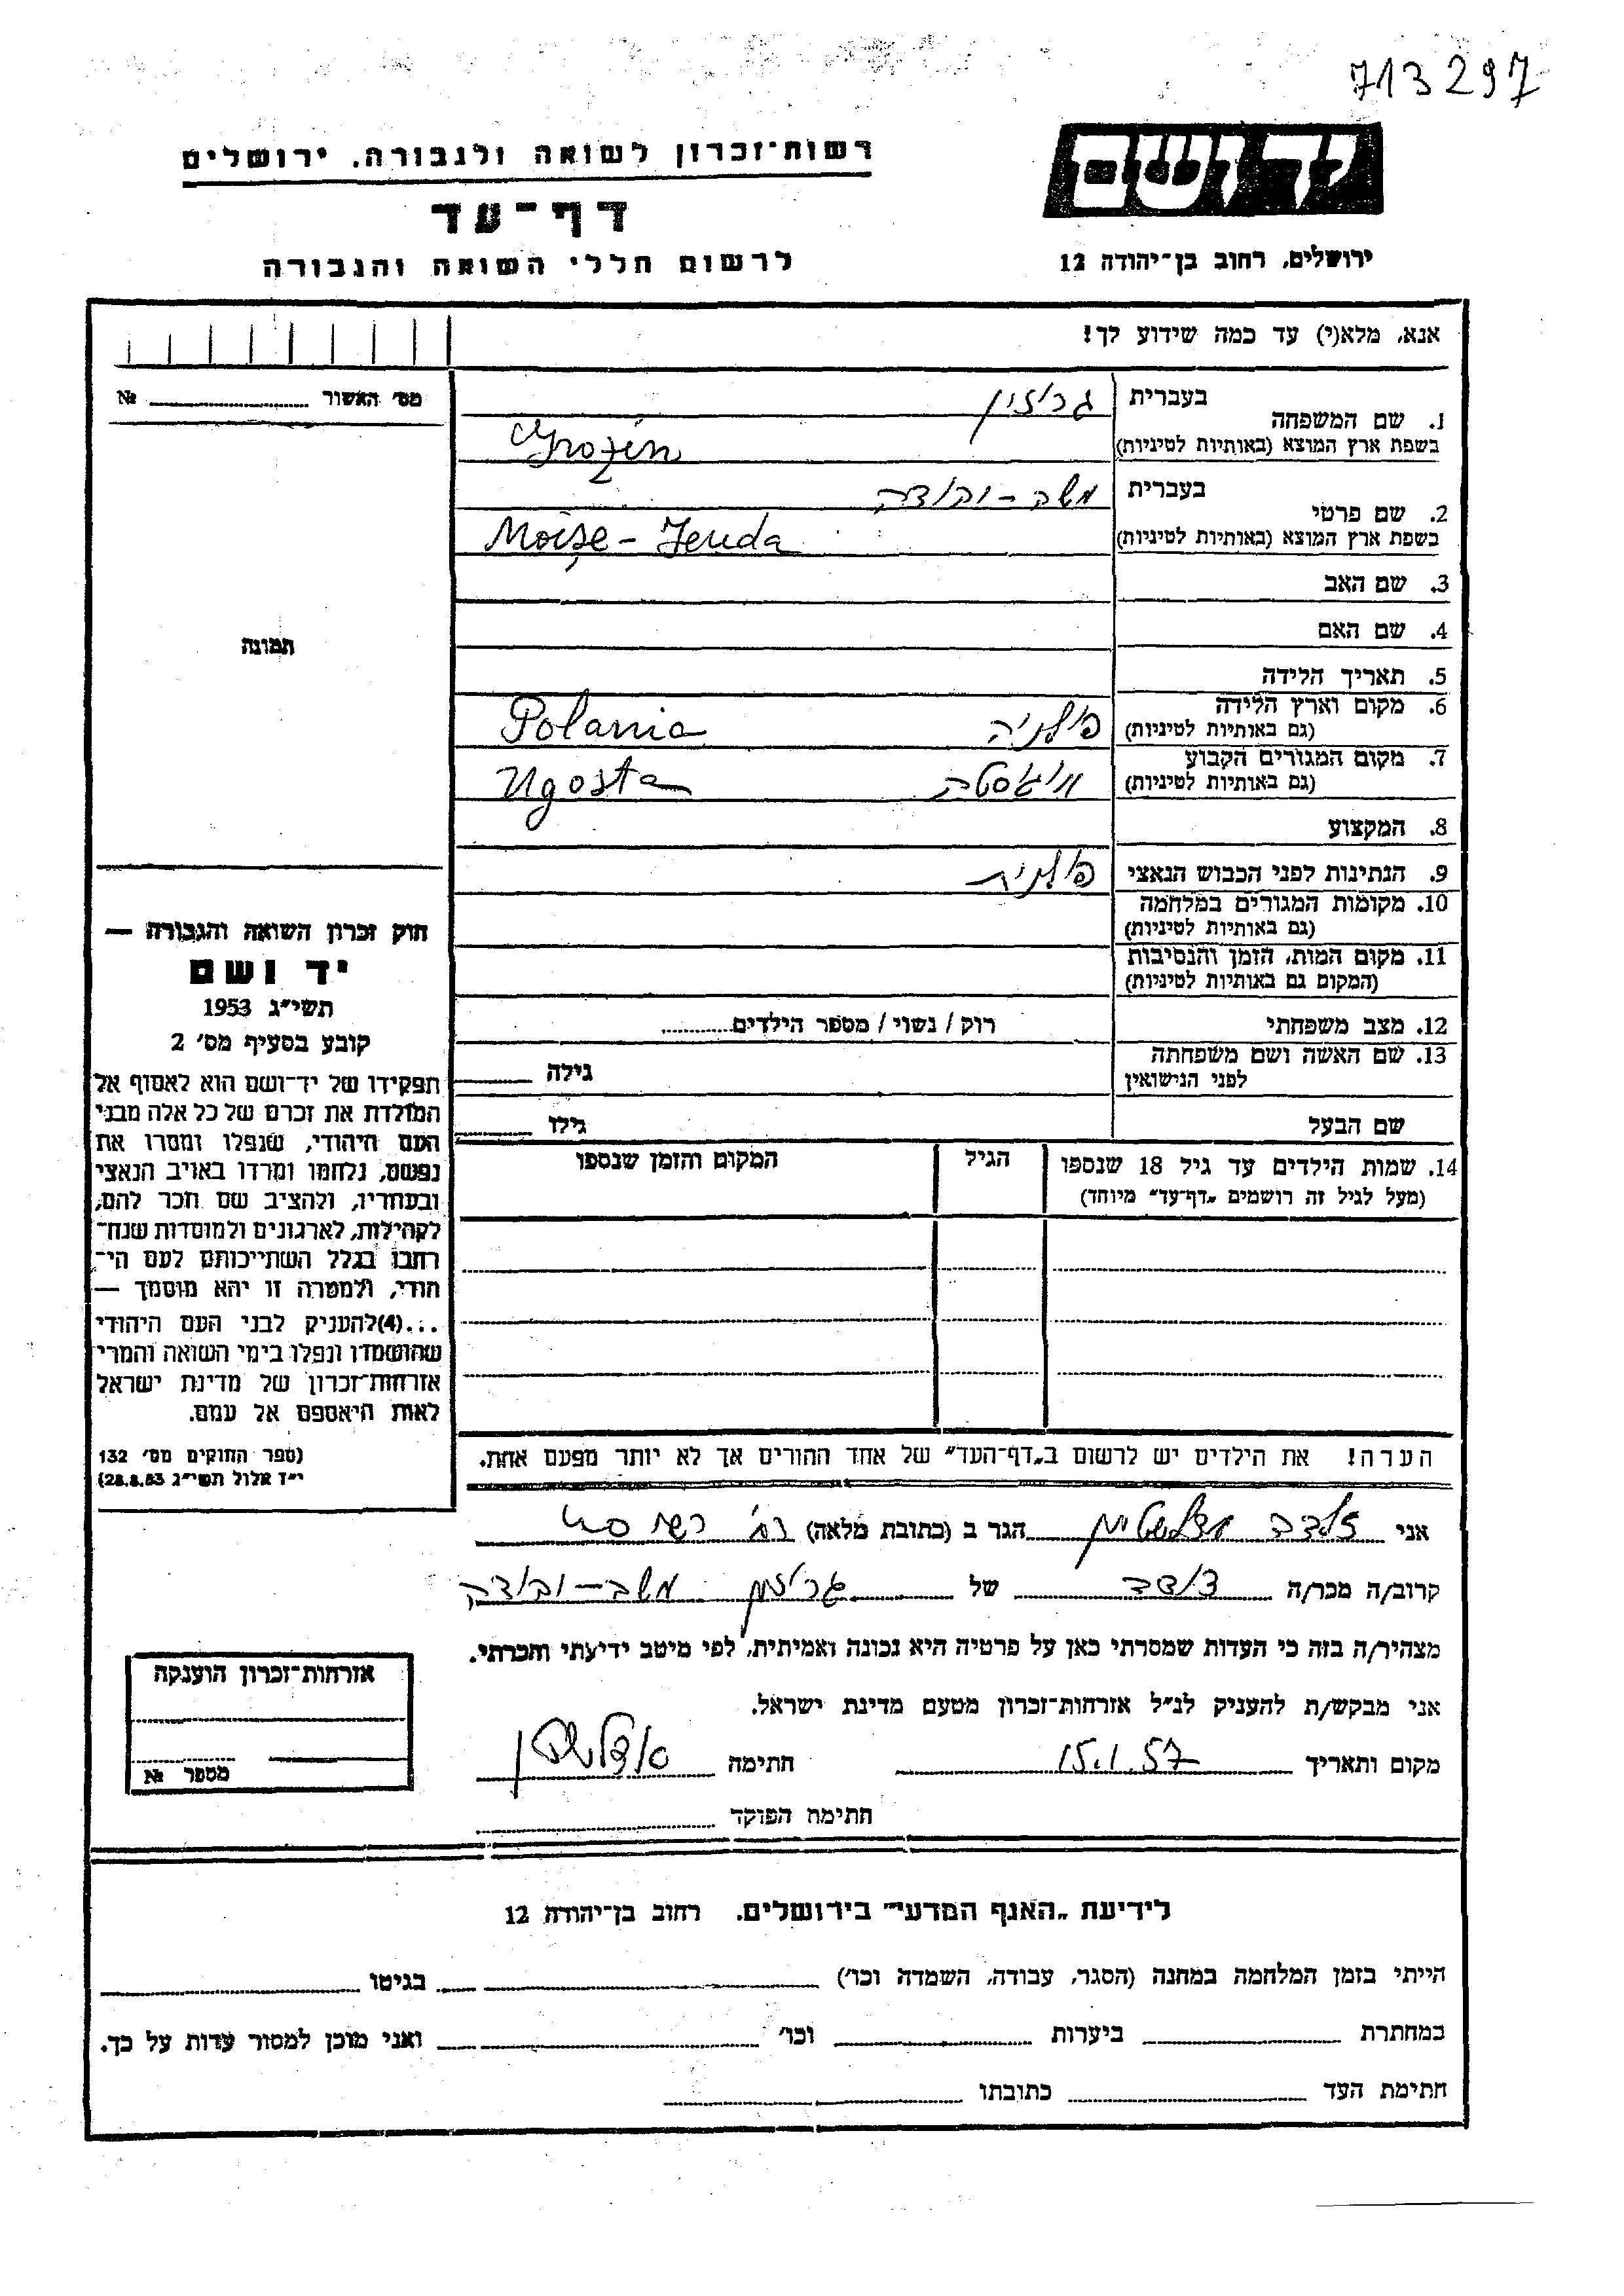 713297
רשות־זכרון לשואה ולגבורה. ירושלים
יד ושם
דף־עד
ירושלים, רחוב בן־יהודה 12
לרשום חללי השואה והגבורה
אנא, מלא(י) עד כמה שידוע לך!
מס׳ האשור № 
1. שם המשפחה בעברית גרוזין
בשפת ארץ המוצא (באותיות לטיניות) Grozin
2. שם פרטי בעברית משה-יהודה
בשפת ארץ המוצא (באותיות לטיניות) Moise-Jeuda
3. שם האב
4. שם האם
תמונה
5. תאריך הלידה
6. מקום וארץ הלידה פולניה Polania
(גם באותיות לטיניות)
7. מקום המגורים הקבוע Ugosta
(גם באותיות לטיניות)
8. המקצוע
9. הנתינות לפני הכבוש הנאצי פולנית
10. מקומות המגורים במלחמה
(גם באותיות לטיניות)
11. מקום המות, הזמן והנסיבות
(המקום גם באותיות לטיניות)
12. מצב משפחתי רוק / נשוי / מספר הילדים
13. שם האשה ושם משפחתה
לפני הנישואין גילה
שם הבעל גילו
14. שמות הילדים עד גיל 18 שנספו הגיל המקום והזמן שנספו
(מעל לגיל זה רושמים „דף־עד״ מיוחד)
חוק זכרון השואה והגבורה —
יד ושם
תשי״ג 1953
קובע בסעיף מס׳ 2
תפקידו של יד־ושם הוא לאסוף אל
המולדת את זכרם של כל אלה מבני
העם היהודי, שנפלו ומסרו את
נפשם, נלחמו ומרדו באויב הנאצי
ובעוזריו, ולהציב שם וזכר להם,
לקהילות, לארגונים ולמוסדות שנח־
רבו בגלל השתייכותם לעם הי־
הודי, ולמטרה זו יהא מוסמך —
...(4)להעניק לבני העם היהודי
שהושמדו ונפלו בימי השואה והמרי
אזרחות־זכרון של מדינת ישראל
לאות היאספם אל עמם.
(ספר החוקים מס׳ 132
י״ד אלול תשי״ג 28.8.53)
הערה! את הילדים יש לרשום ב„דף־העד״ של אחד ההורים אך לא יותר מפעם אחת.
אני הגר ב (כתובת מלאה) רח׳
קרוב/ה מכר/ה של גרוזין משה-יהודה
מצהיר/ה בזה כי העדות שמסרתי כאן על פרטיה היא נכונה ואמיתית, לפי מיטב ידיעתי והכרתי.
אני מבקש/ת להעניק לנ״ל אזרחות־זכרון מטעם מדינת ישראל.
מקום ותאריך 15.1.57 חתימה
חתימת הפוקד
אזרחות־זכרון הוענקה
מספר №
לידיעת „האגף המדעי״ בירושלים. רחוב בן־יהודה 12
הייתי בזמן המלחמה במחנה (הסגר, עבודה, השמדה וכו׳) בגיטו
במחתרת ביערות וכו׳ ואני מוכן למסור עדות על כך.
חתימת העד כתובתו